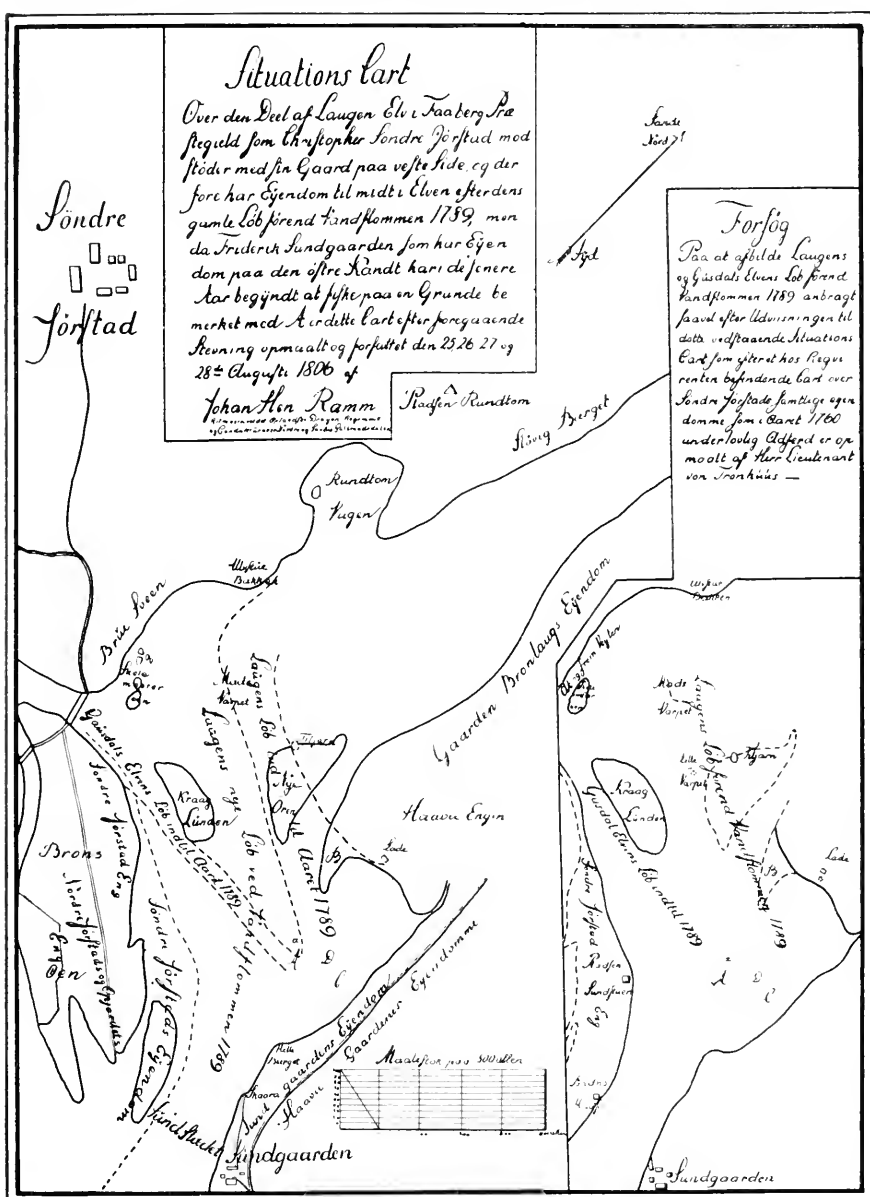 Situations Cart
Over den Deel af Laugen Elv i Faaberg Præ
stegield som Christopher Söndre Jörstad mod
stöder med sin Gaard paa veste Side, og der
fore har Eÿendom til midt i Elven efter dens
gamle Löb förend Vandflommen 1789, men
da Friderich Sundgaarden som har Eÿen
dom paa den östre Kandt har i de senere
Aar begÿndt at fiske paa en Grunde be
merket med A er dette Cart efter foregaaende
Stevning opmaalt og forfattet den 25 26 27 og
28de Augusti 1806 af
Johan Hen Ramm
Söndre
Jörstad
Sande
Nord
Sÿd
Forsög
Paa at afbilde Laugens
og Gusdals Elvens Löb förend
Vandflommen 1789 anbragt
saavel efter Udviisningen til
dette vedstaaende Situations
Cart som efter et hos Requi
renten befindende Cart over
Söndre Jörstads samtlige egen
domme som i Aaret 1760
under lovlig Adferd er op
maalt af Herr Lieutenant
von Tronhuus —
Pladsen Rundtom
Stöveg Berget
Rundtom
Vugen
Brue Sveen
Gaarden Bronlaugs Eÿendom
Varpet
Laugens Löb ind til Aaret 1789
Laugens nye Löb ved Vandflommen 1789
Gausdals Elvens Löb indtil Aaret 1789
Kraag
Lünden
Nÿe
Ören
Haave Engen
Lade
B
A
D
C
Söndre Jörstad Eng
Brons
Öen
Söndre Jörstads Eÿendom
Sund Stuchet
Sundgaardens Eÿendom
Haave Gaardenes Eÿendomme
Helle
Berget
Skaara
Sundgaarden
Maalestok paa 500 allen
Mads
Varpet
Lille
Varpet
Laugens Löb förend Vandflommen 1789
Kraag
Lünden
Gusdal Elvens Löb indtil 1789
B
Lade
Söndre Jörstad
Eng
Pladsen
Sundstuen
A
D
C
Sundgaarden